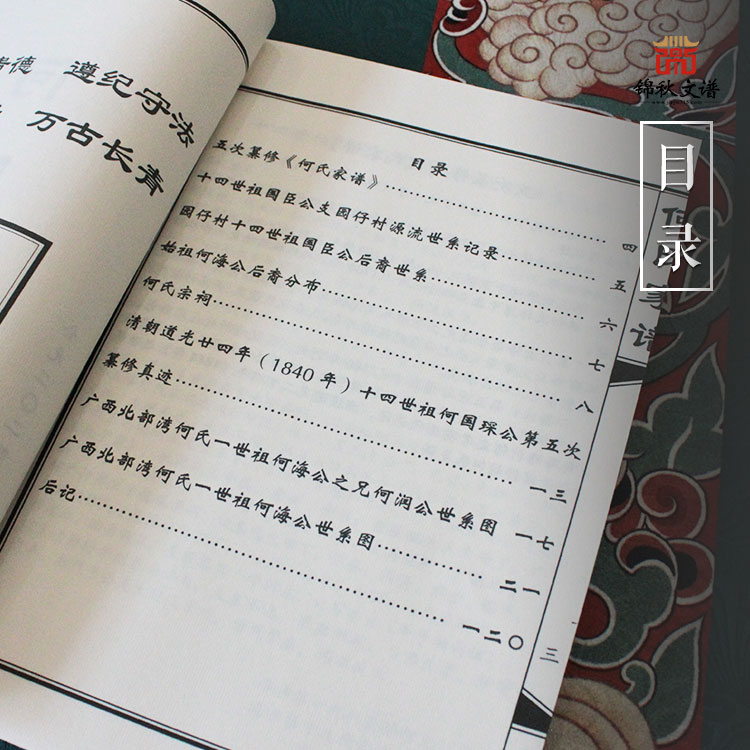 锦秋文谱
目录
遵纪守法
万古长青
目录
五次纂修《何氏家谱》……四
十四世祖国臣公支园仔村源流世系记录……五
园仔村十四世祖国臣公后裔世系……六
始祖何海公后裔分布……七
何氏宗祠……八
清朝道光廿四年（1840年）十四世祖何国琛公第五次
纂修真迹……一三
广西北部湾何氏一世祖何海公之兄何润公世系图 一七
广西北部湾何氏一世祖何海公世系图……二一
后记……一二〇
三